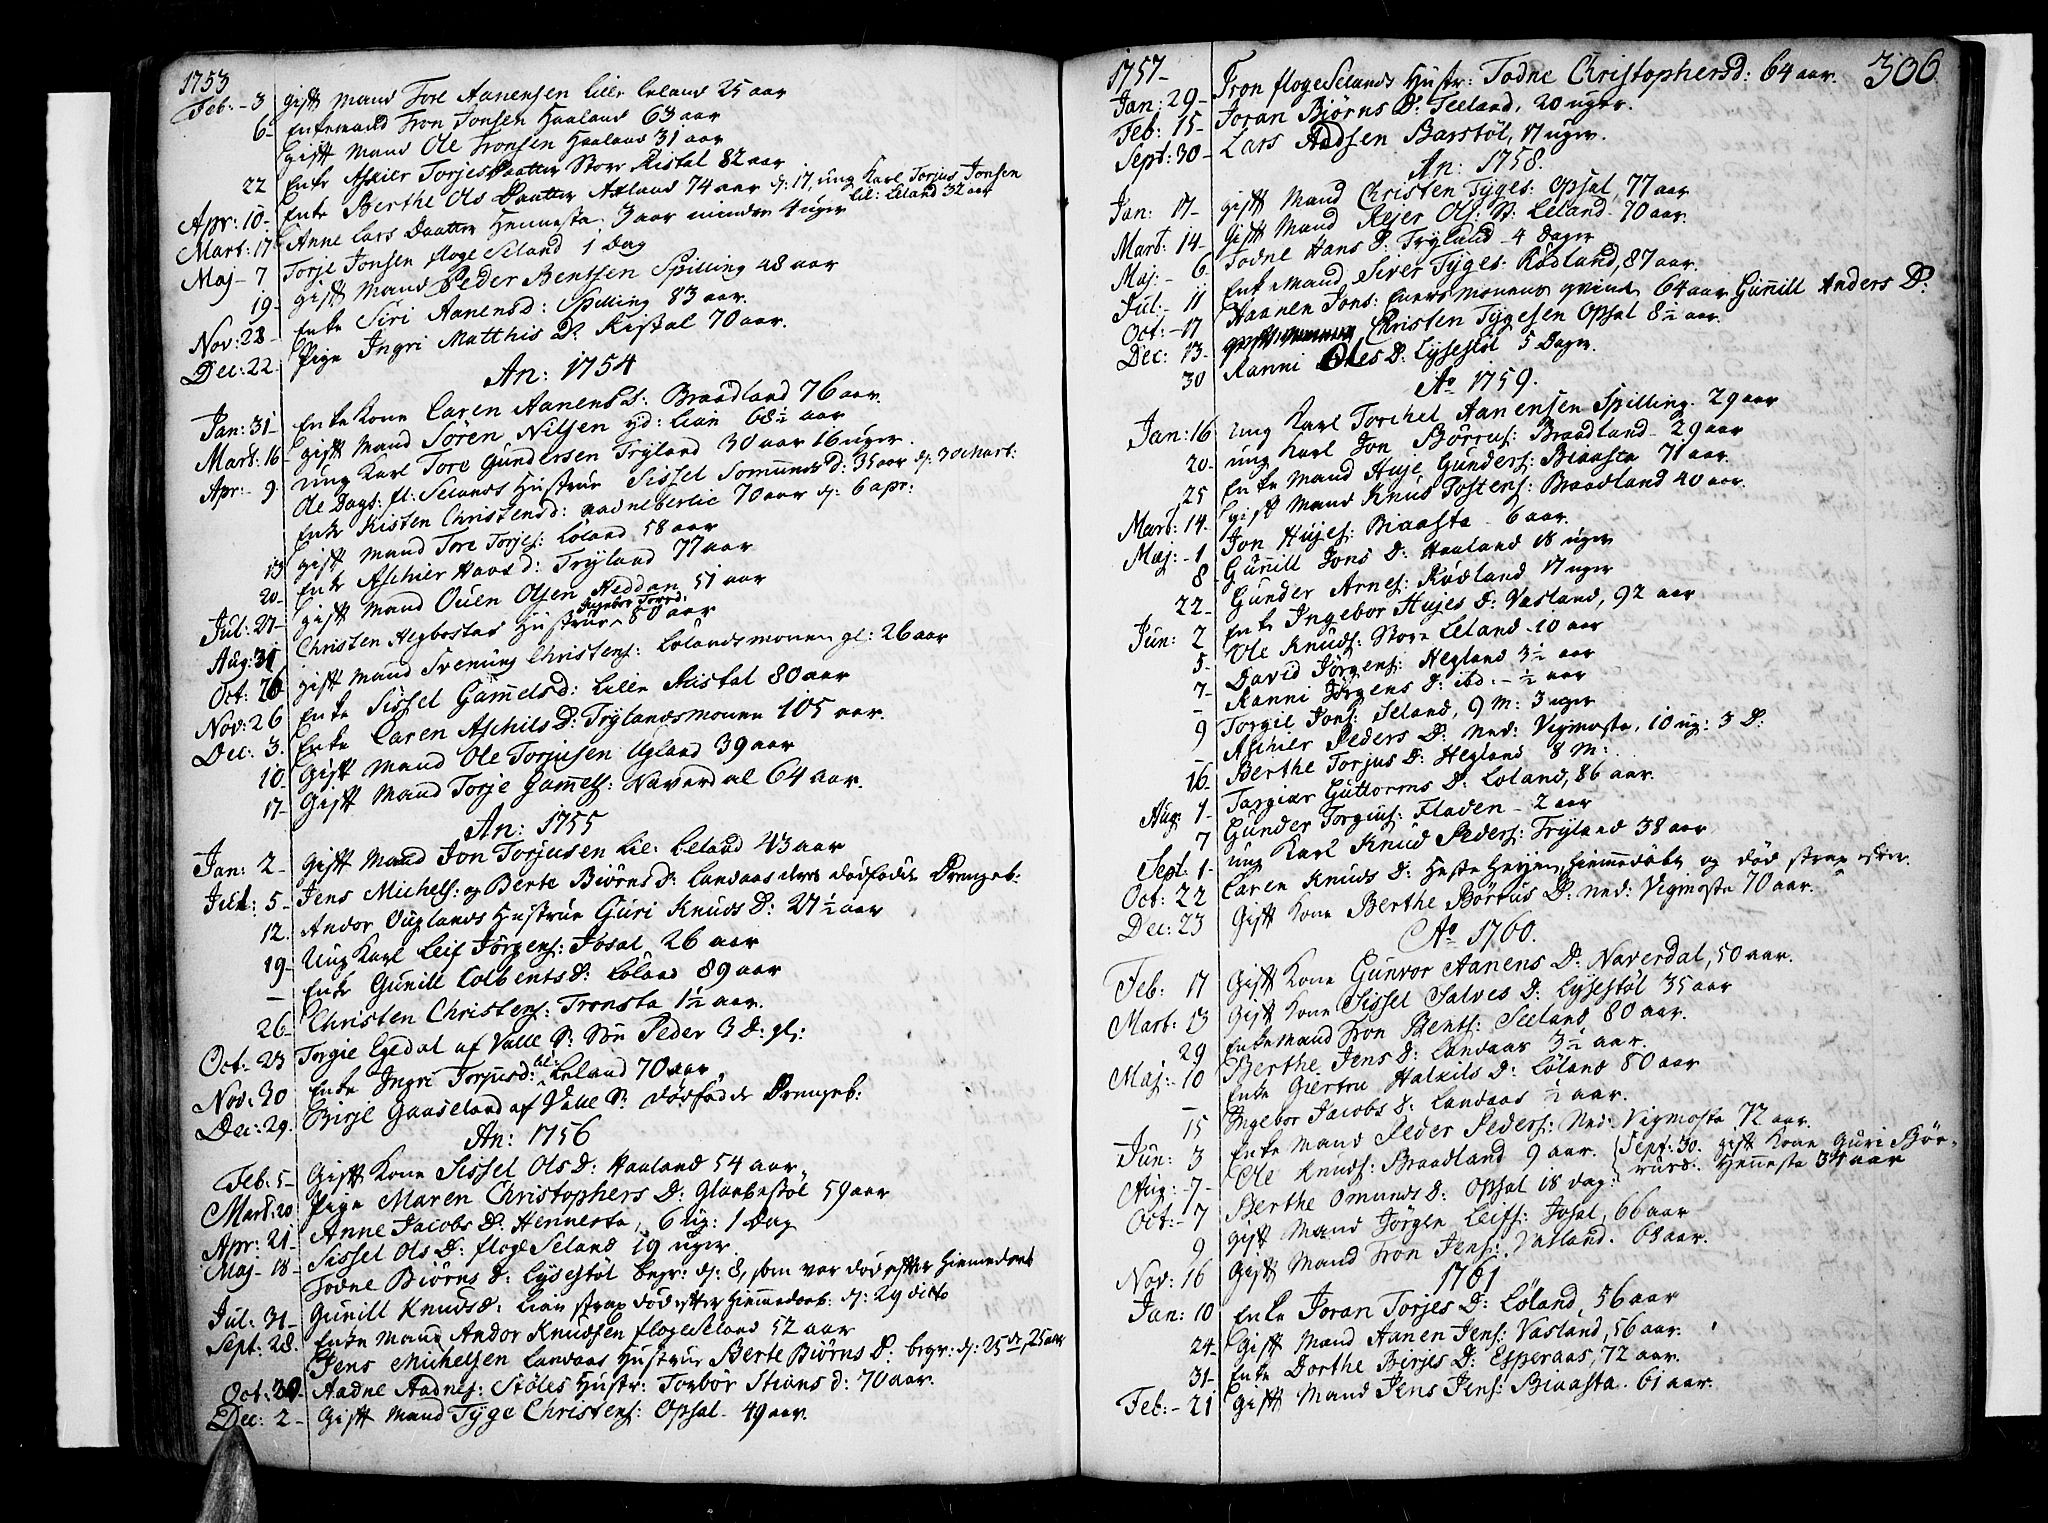 1753
Feb: - 3 gift Mand Tore Aanensen Lille Leland 25 aar
6- Enkemand Tron Jonsen Haaland 63 aar
gift Mand Ole Tronsen Haaland 31 aar
22 Enke Askier Torjes Daatter Store Kistal 82 aar
Apr: 10- Enke Berthe Ols Daatter Axland 74 aar d: 17, ung Karl Torjus Jonsen
lil: Leland 32 aar
Mart: 17 Anne Lars Daatter Hennesta, 3 aar mindre 4 uger
Maj- 7 Torje Jonsen floge Seland 1 Dag
19- gift Mand Peder Bentsen Spilling 48 aar
Nov: 28- Enke Siri Aanensd: Spilling 83 aar.
Dec: 22. Pige Ingri Matthis D: Kistal 70 aar.
An: 1754
Jan: 31- Enke Kone Caren Aanensd: Braadland 76 aar.
Mart: 16- gift Mand Sören Nilsen yd: Lian 68½ aar
Apr:- 9 ung Karl Tore Gundersen Tryland 30 aar 16 uger.
Ole Dags: fl: Selands Hustrue Sissel Tomunds D: 35 aar d: 30 Mart:
Enke Kisten Christensd: 70 aar d: 6 apr:
13 gift Mand Tore Torjes: Løland 58 aar
20- Enke Aschier Haans d: Tryland 77 aar
Jul: 27- gift Mand Ouen Olsen Heddan 51 aar
Aug: 31 Christen Hegbostad Hustrue Ingebor Torsd: 80 aar
Oct: 26 gift Mand Svenung Christens: Lølandsmonen gl: 26 aar
Nov: 26 Enke Sissel Gamelsd: Lille Kistal 80 aar
Dec: 3. Enke Caren Aschils D: Trylandsmonen 105 aar.
10 Gift Mand Ole Torjusen Ugland 39 aar
17- Gift Mand Torje Gamels: Naverdal 64 aar.
An: 1755
Jan: 2- Gift Mand Jon Torjusen Lil: Leland 43 aar
Jul: 5- Jens Michels: og Berte Biörns D: Landaas deres dödfödde Drengeb:
12. Andor Ouglands Hustrue Guri Knuds D: 27½ aar
19- Ung Karl Leif Jörgens: Josal 26 aar
- Enke Gunill Colbents D: Löland 89 aar
26- Christen Christens: Tronsta 1½ aar.
Oct: 23 Torgie Egedal af Valle S: Sön Peder 3 D: gl:
Nov: 30 Enke Ingri Torjusd: lil: Leland 70 aar,
Dec: 29. Birje Gaaseland af Valle S: dödfödde Drengeb:
An: 1756
Feb: 5- Gift Kone Sissel Ols D: Haaland 54 aar.
Mart: 20 Pige Maren Christophers D: Glambestöl 59 aar
Apr: 21- Anne Jacobs D: Hennesta, 6 ug: 1 Dag
Maj- 18- Sissel Ols D: floge Seland 19 uger.
Todne Biörns D: Lysestöl begr: d: 8, som var död efter Hiemedaab
Jul: 31- Gunill Knudsd: Lian strax död efter Hiemmedaab: d: 29 ditto
Sept: 28. Enke Mand Andor Knudsen floge Seland 52 aar
Jens Michelsen Landaas Hustrue Berte Biörns D: begr: d: 25de, 25 aar
Oct: 30- Aadne Aadnes: Stöles Hustr: Torbor Stians d: 70 aar.
Dec: 2- Gift Mand Tyge Christens: Opsal 49 aar.
306
1757-
Jan: 29- Tron floge Selands Hustr: Todne Christophersd: 64 aar.
Feb: 15- Joran Biörns D: Seeland, 20 uger.
Sept: 30- Lars Aadsen Barstöl, 17 uger.
An: 1758.
Jan: 17- gift Mand Christen Tyges: Opsal, 77 aar
Mart: 14- Gift Mand Rejer Ols: St: Leland 70 aar.
Maj: - 6 Todne Hans D: Tryland - 4 Dager
Jul: 11 Enke Mand Siver Tyges: Rödland, 87 aar.
Oct: -17 Haanen Jons: qvinde 64 aar Gunill Anders D:
Dec: 13- Christen Tygesen Opsal 8½ aar.
30 Ranni Oles D: Lysestöl 5 Dager.
Ao 1759.
Jan: 16 Ung Karl Torchel Aanensen Spilling. 29 aar
20- ung Karl Jon Börrus: Braadland - 29 aar
25 Enke Mand Huje Gunders: Biaasta 71 aar.
Mart: 14- gift Mand Knud Tostens: Braadland 40 aar.
Maj: - 1 Jon Hujes: Biaasta - 6 aar.
8 Gunill Jons D: Haaland 18 uger
22- Gunder Arnes: Rödland 17 uger
Jun: 2 Enke Ingebor Hujes D: Vasland, 92 aar
5- Ole Knuds: Store Leland - 10 aar
7- David Jörgens: Hegland 3½ aar
- Ranni Jörgens D: ibd: - ½ aar
9 Torgie Jons: Seland, 9 M: 3 uger
- Aschier Peders D: Ned: Vigmosta, 10 ug: 3 D:
16 Berthe Torjus D: Hegland 8 M:
Aug: 1- Targier Guttorms D: Loland, 86 aar.
7 Gunder Torgius: Fladen - 2 aar
Sept: 1- ung Karl Knud Peders: Tryland 38 aar
Oct: 22 Caren Knuds D: Heste Heyen, Hiemmedöbt og död strax efter.
Dec: 23 Gift Kone Berthe Börrus D: Ned: Vigmosta 70 aar.
Ao 1760.
Feb: 17 Gift Kone Gunvor Aanens D: Naverdal, 50 aar.
Mart: 13 Gift Kone Sissel Salves D: Lysestöl 35 aar
29 Enkemand Tron Bents: Seeland 80 aar.
Maj: - 10 Berthe Jens D: Landaas 3½ aar.
- Enke Giertru Halkils D: Löland 80 aar
15 Ingebor Jacobs D: Landaas ½ aar.
Jun: 3 Enke Mand Peder Peders: Ned: Vigmosta 72 aar.
Aug: - 7- Ole Knuds: Braadland 9 aar. {Sept: 30. gift Kone Guri Bör-
rusd: Hennesta 34 aar
Oct: - 7 Berthe Omunds D: Opsal 18 dag:
9 gift Mand Jörgen Leifs: Josal, 66 aar
Nov: 16 Gift Mand Tron Jens: Vatland. 68 aar.
1761
Jan: 10 Enke Joran Torjes D: Löland, 56 aar
24- Gift Mand Aanen Jens: Vasland, 56 aar.
31- Enke Dorthe Birjes D: Esperaas, 72 aar.
Feb: - 21 Gift Mand Jens Jens: Biaasta. 61 aar.